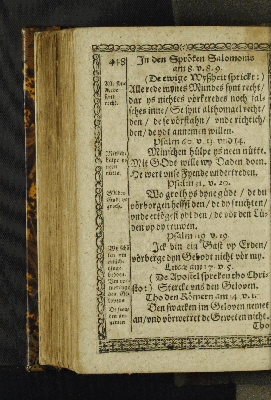 418
In den Spröken Salomonis
am 8. v. 8. 9.
(De ewige Wyßheit sprickt:)
Alle rede mynes Mundes synt recht/
dar ys nichtes vörkeredes noch fal-
sches inne/ Se synt althomael recht/
den / de se vörstahn / vnde richtich/
den / de ydt annemen willen.
Psalm 60. v. 13. vnd 14.
Minschen hülpe ys neen nütte.
Mit GOdt wille wy Daden doen.
He wert vnse Fyende vndertreden.
Psalm 31. v. 20.
Wo groth ys dyne güde / de du
vörborgen heffst den / de dy früchten/
vnde ertögest ydt den / de vör den Lü-
den vp dy truwen.
Psalm 119. v. 19.
Ick bin ein Gast vp Erden/
vörberge dyn Gebodt nicht vör my.
Lucæ am 17. v. 5.
(De Apostel spreken tho Chri-
sto:) Stercke vns den Gelouen.
Tho den Römern am 14. v. 1.
Den swacken im Gelouen nemet
an/ vnd vörwerret de Geweten nicht.
Tho
recht.
Minschē
hülpe ys
neen
nütte.
groth.